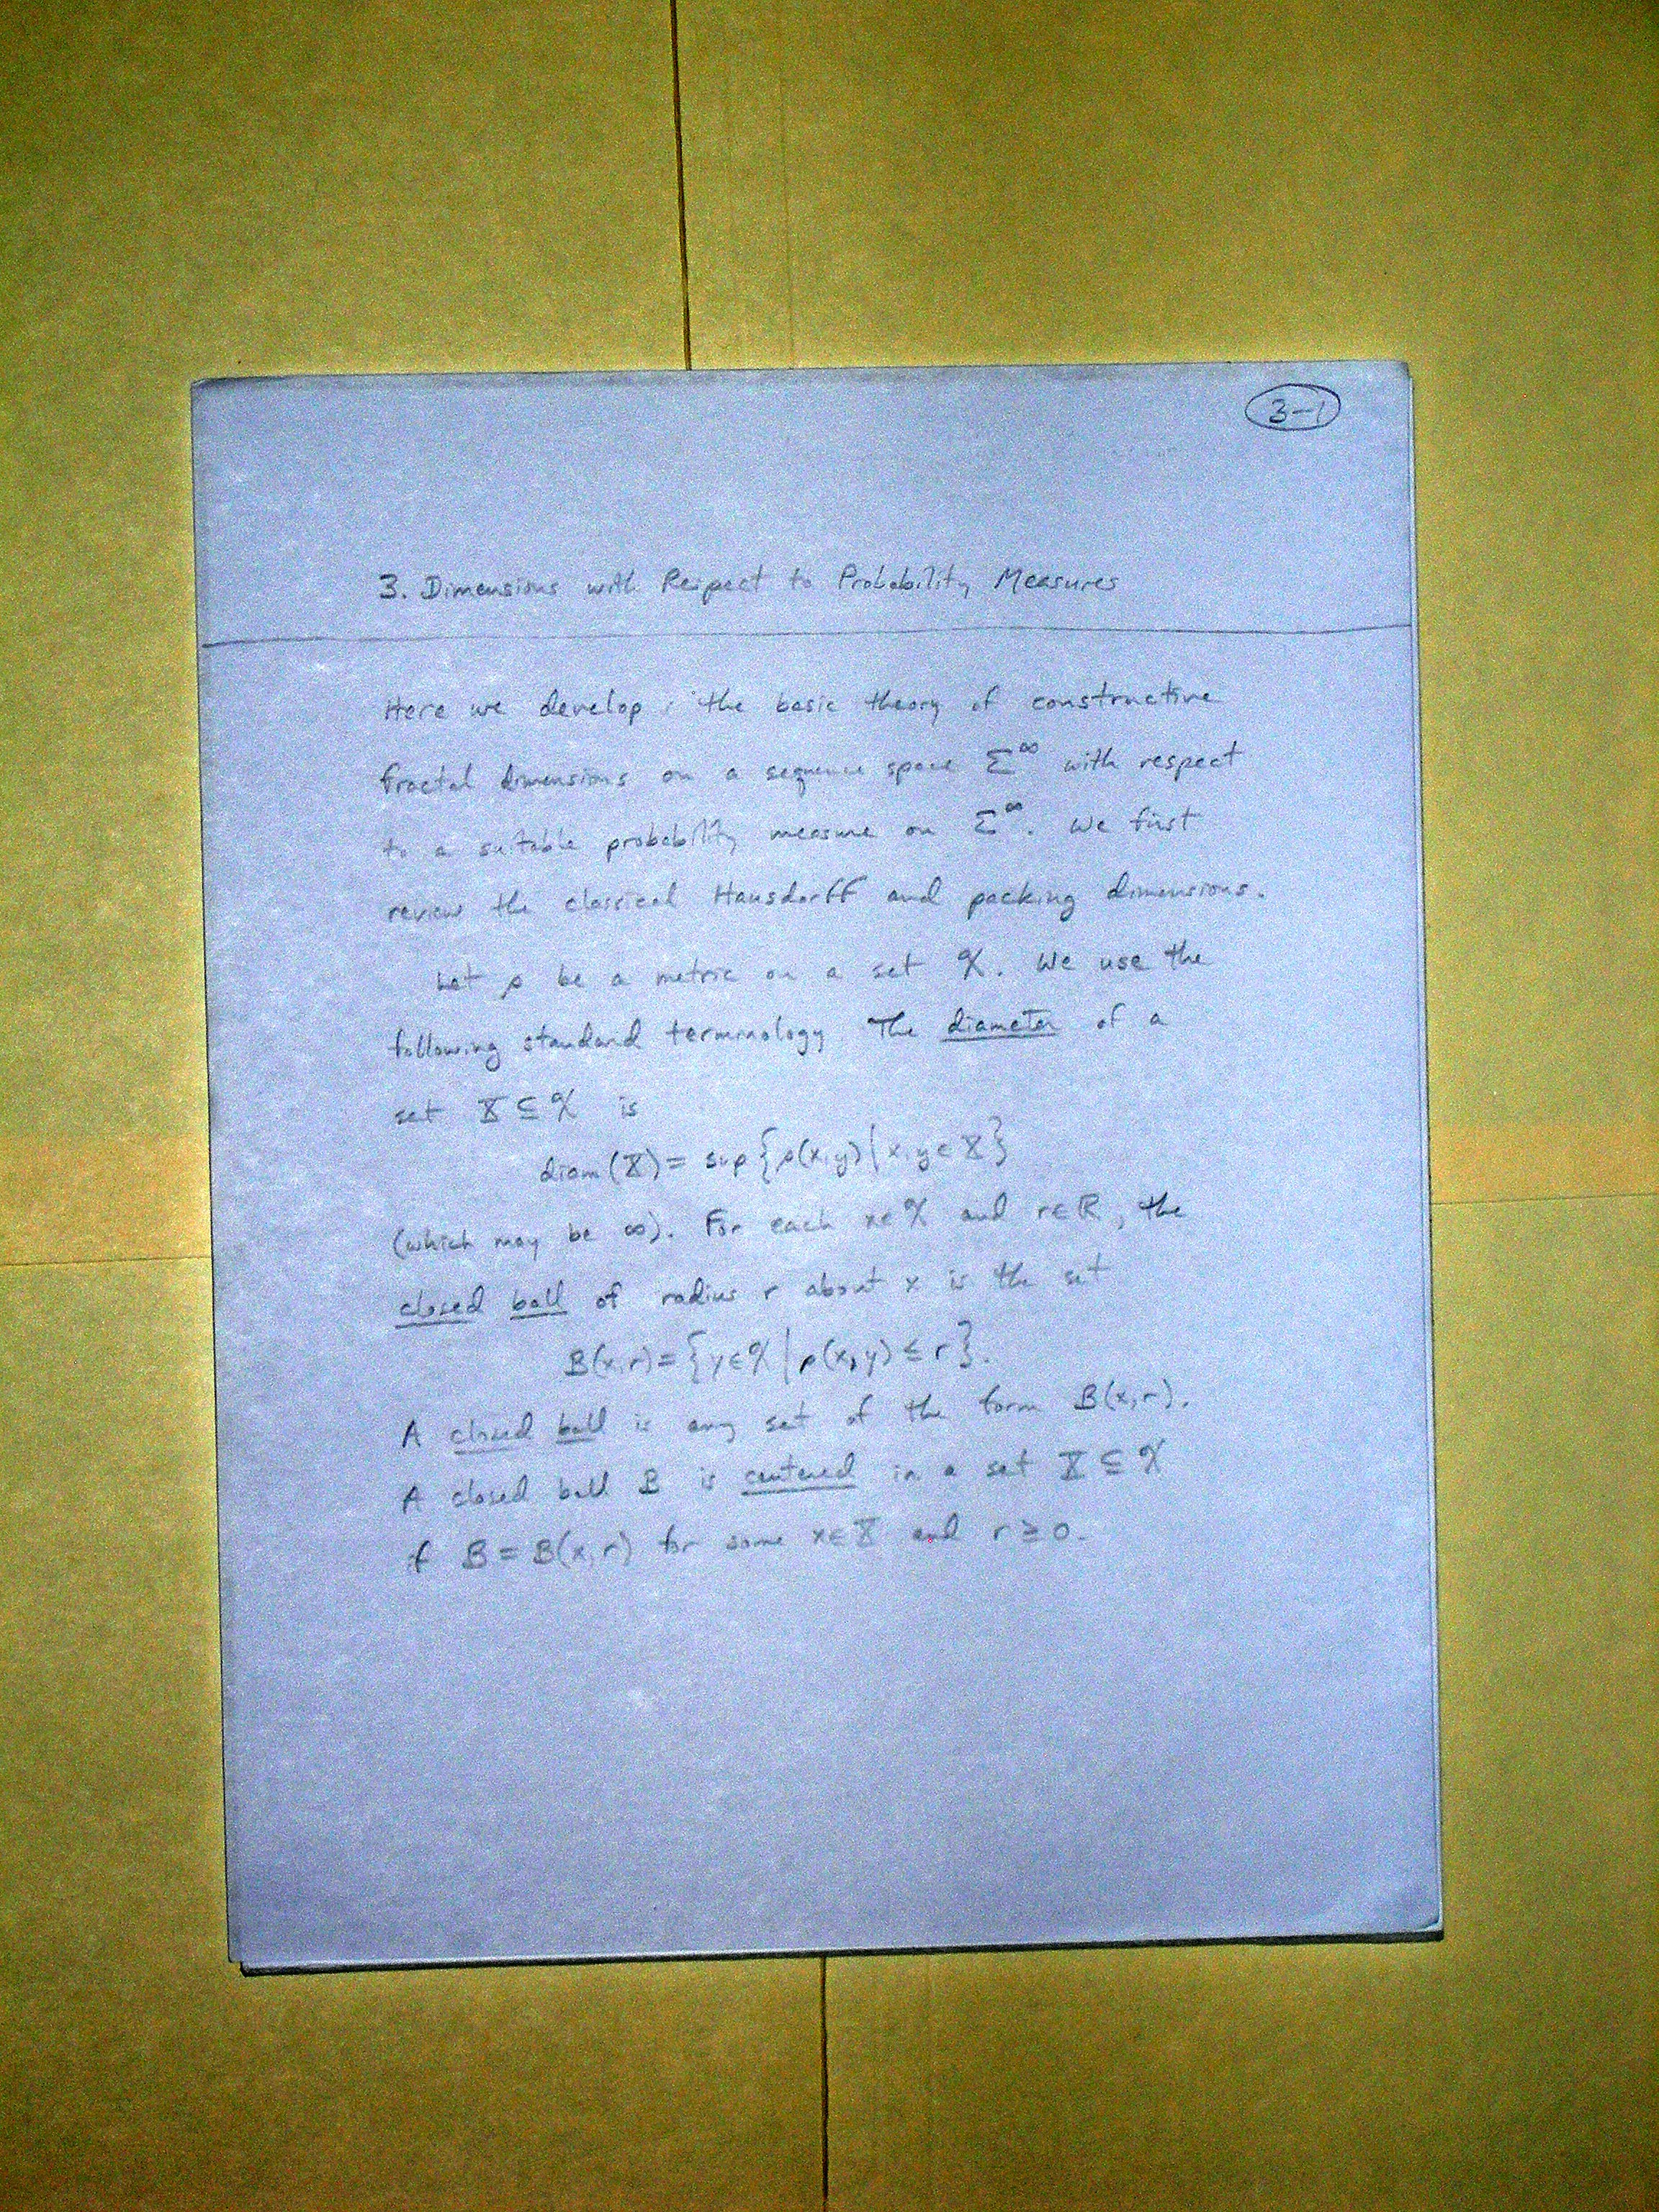 3-1
3. Dimensions with Respect to Probability Measures
Here we develop the basic theory of constructive
fractal dimensions on a sequence space Σ^∞ with respect
to a suitable probability measure on Σ^∞. We first
review the classical Hausdorff and packing dimensions.
Let ρ be a metric on a set 𝒳. We use the
following standard terminology. The diameter of a
set X ⊆ 𝒳 is
diam(X) = sup {ρ(x,y) | x,y ∈ X}
(which may be ∞). For each x ∈ 𝒳 and r ∈ ℝ, the
closed ball of radius r about x is the set
B(x,r) = {y ∈ 𝒳 | ρ(x,y) ≤ r}.
A closed ball is any set of the form B(x,r).
A closed ball B is centered in a set X ⊆ 𝒳
if B = B(x,r) for some x ∈ X and r ≥ 0.